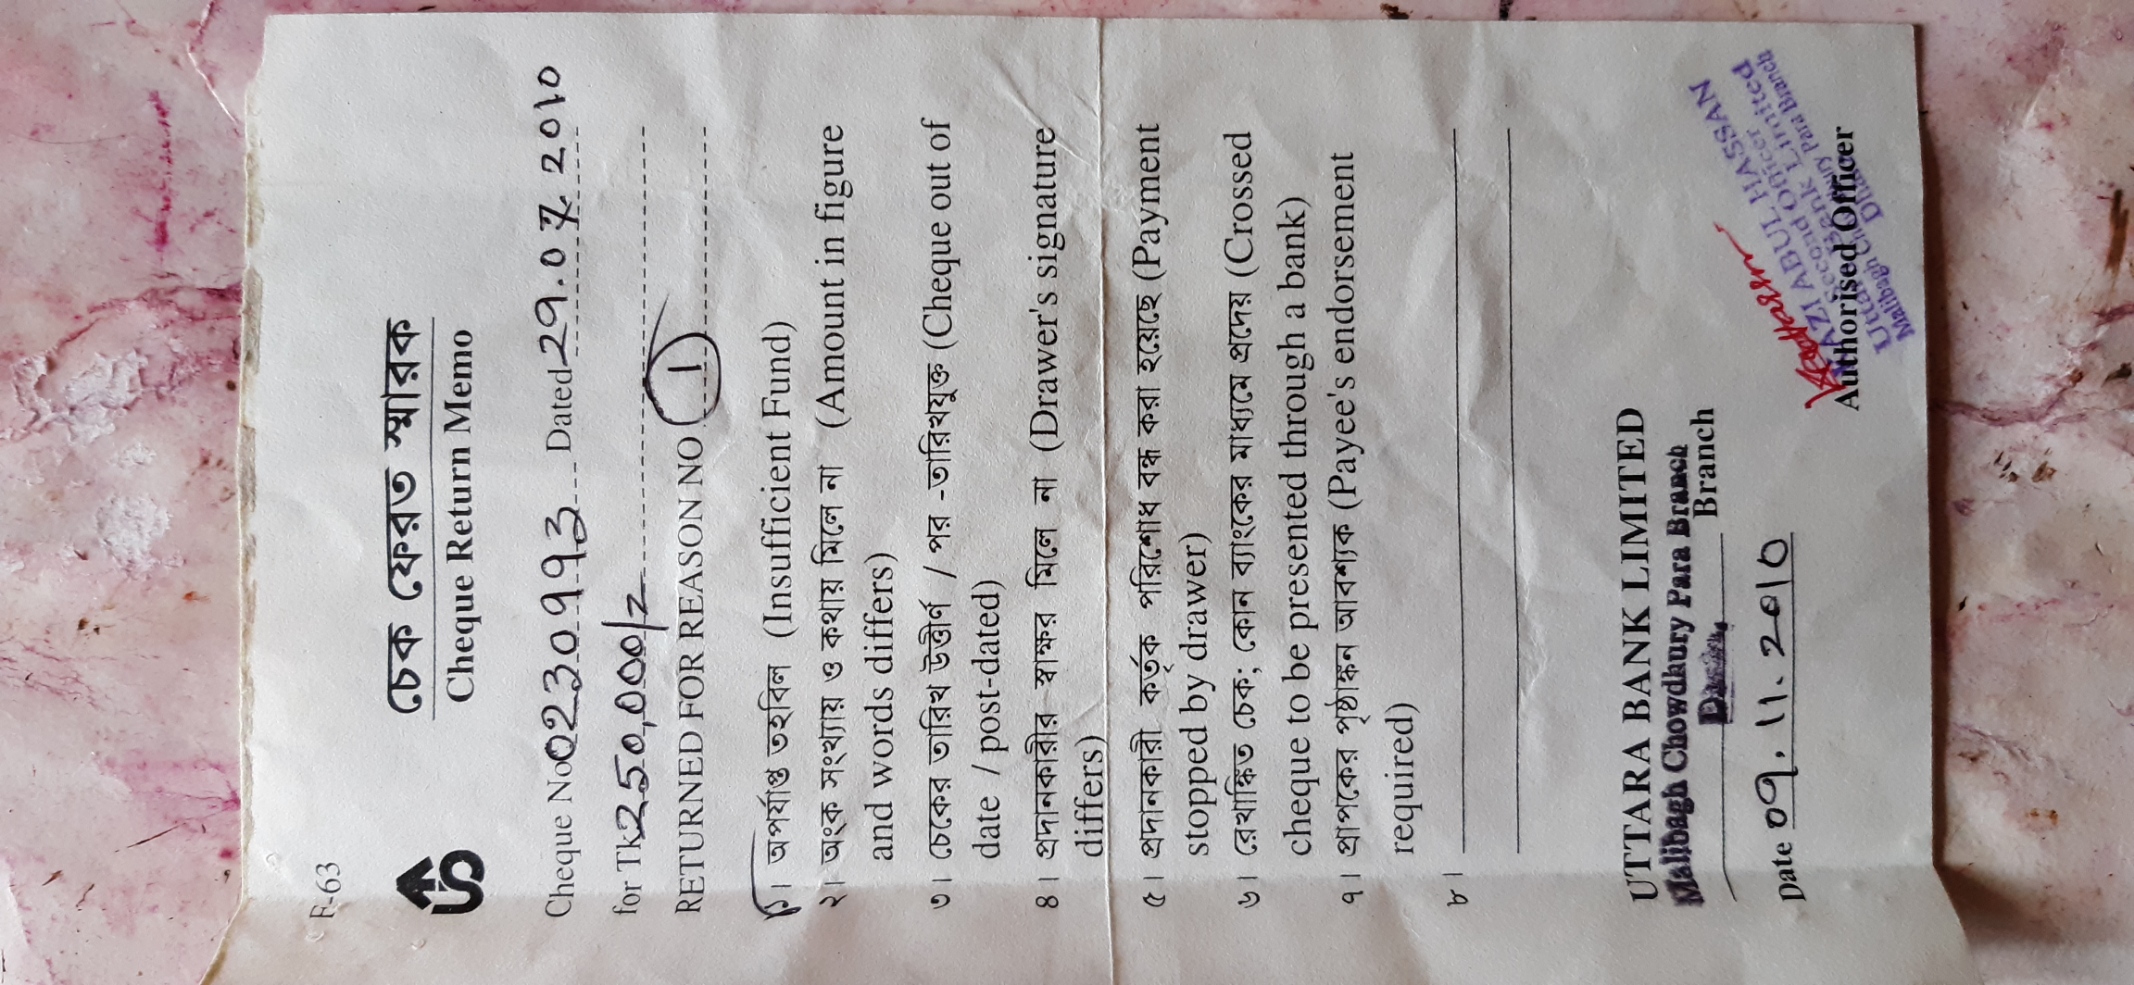 F-63
চেক ফেরত স্মারক
Cheque Return Memo
Cheque No 0230993 Dated 29.07.2010
for Tk 250,000/=
RETURNED FOR REASON NO 1
১। অপর্যাপ্ত তহবিল (Insufficient Fund)
২। অংক সংখ্যায় ও কথায় মিলে না (Amount in figure
and words differs)
৩। চেকের তারিখ উত্তীর্ণ / পর -তারিখযুক্ত (Cheque out of
date / post-dated)
৪। প্রদানকারীর স্বাক্ষর মিলে না (Drawer's signature
differs)
৫। প্রদানকারী কর্তৃক পরিশোধ বন্ধ করা হয়েছে (Payment
stopped by drawer)
৬। রেখাঙ্কিত চেক; কোন ব্যাংকের মাধ্যমে প্রদেয় (Crossed
cheque to be presented through a bank)
৭। প্রাপকের পৃষ্ঠাঙ্কন আবশ্যক (Payee's endorsement
required)
৮।
UTTARA BANK LIMITED
Malibagh Chowdhury Para Branch
Branch
Date 09.11.2010
KAZI ABUL HASSAN
Second Officer
Uttara Bank Limited
Malibagh Chowdhury Para Branch
Dhaka
Authorised Officer